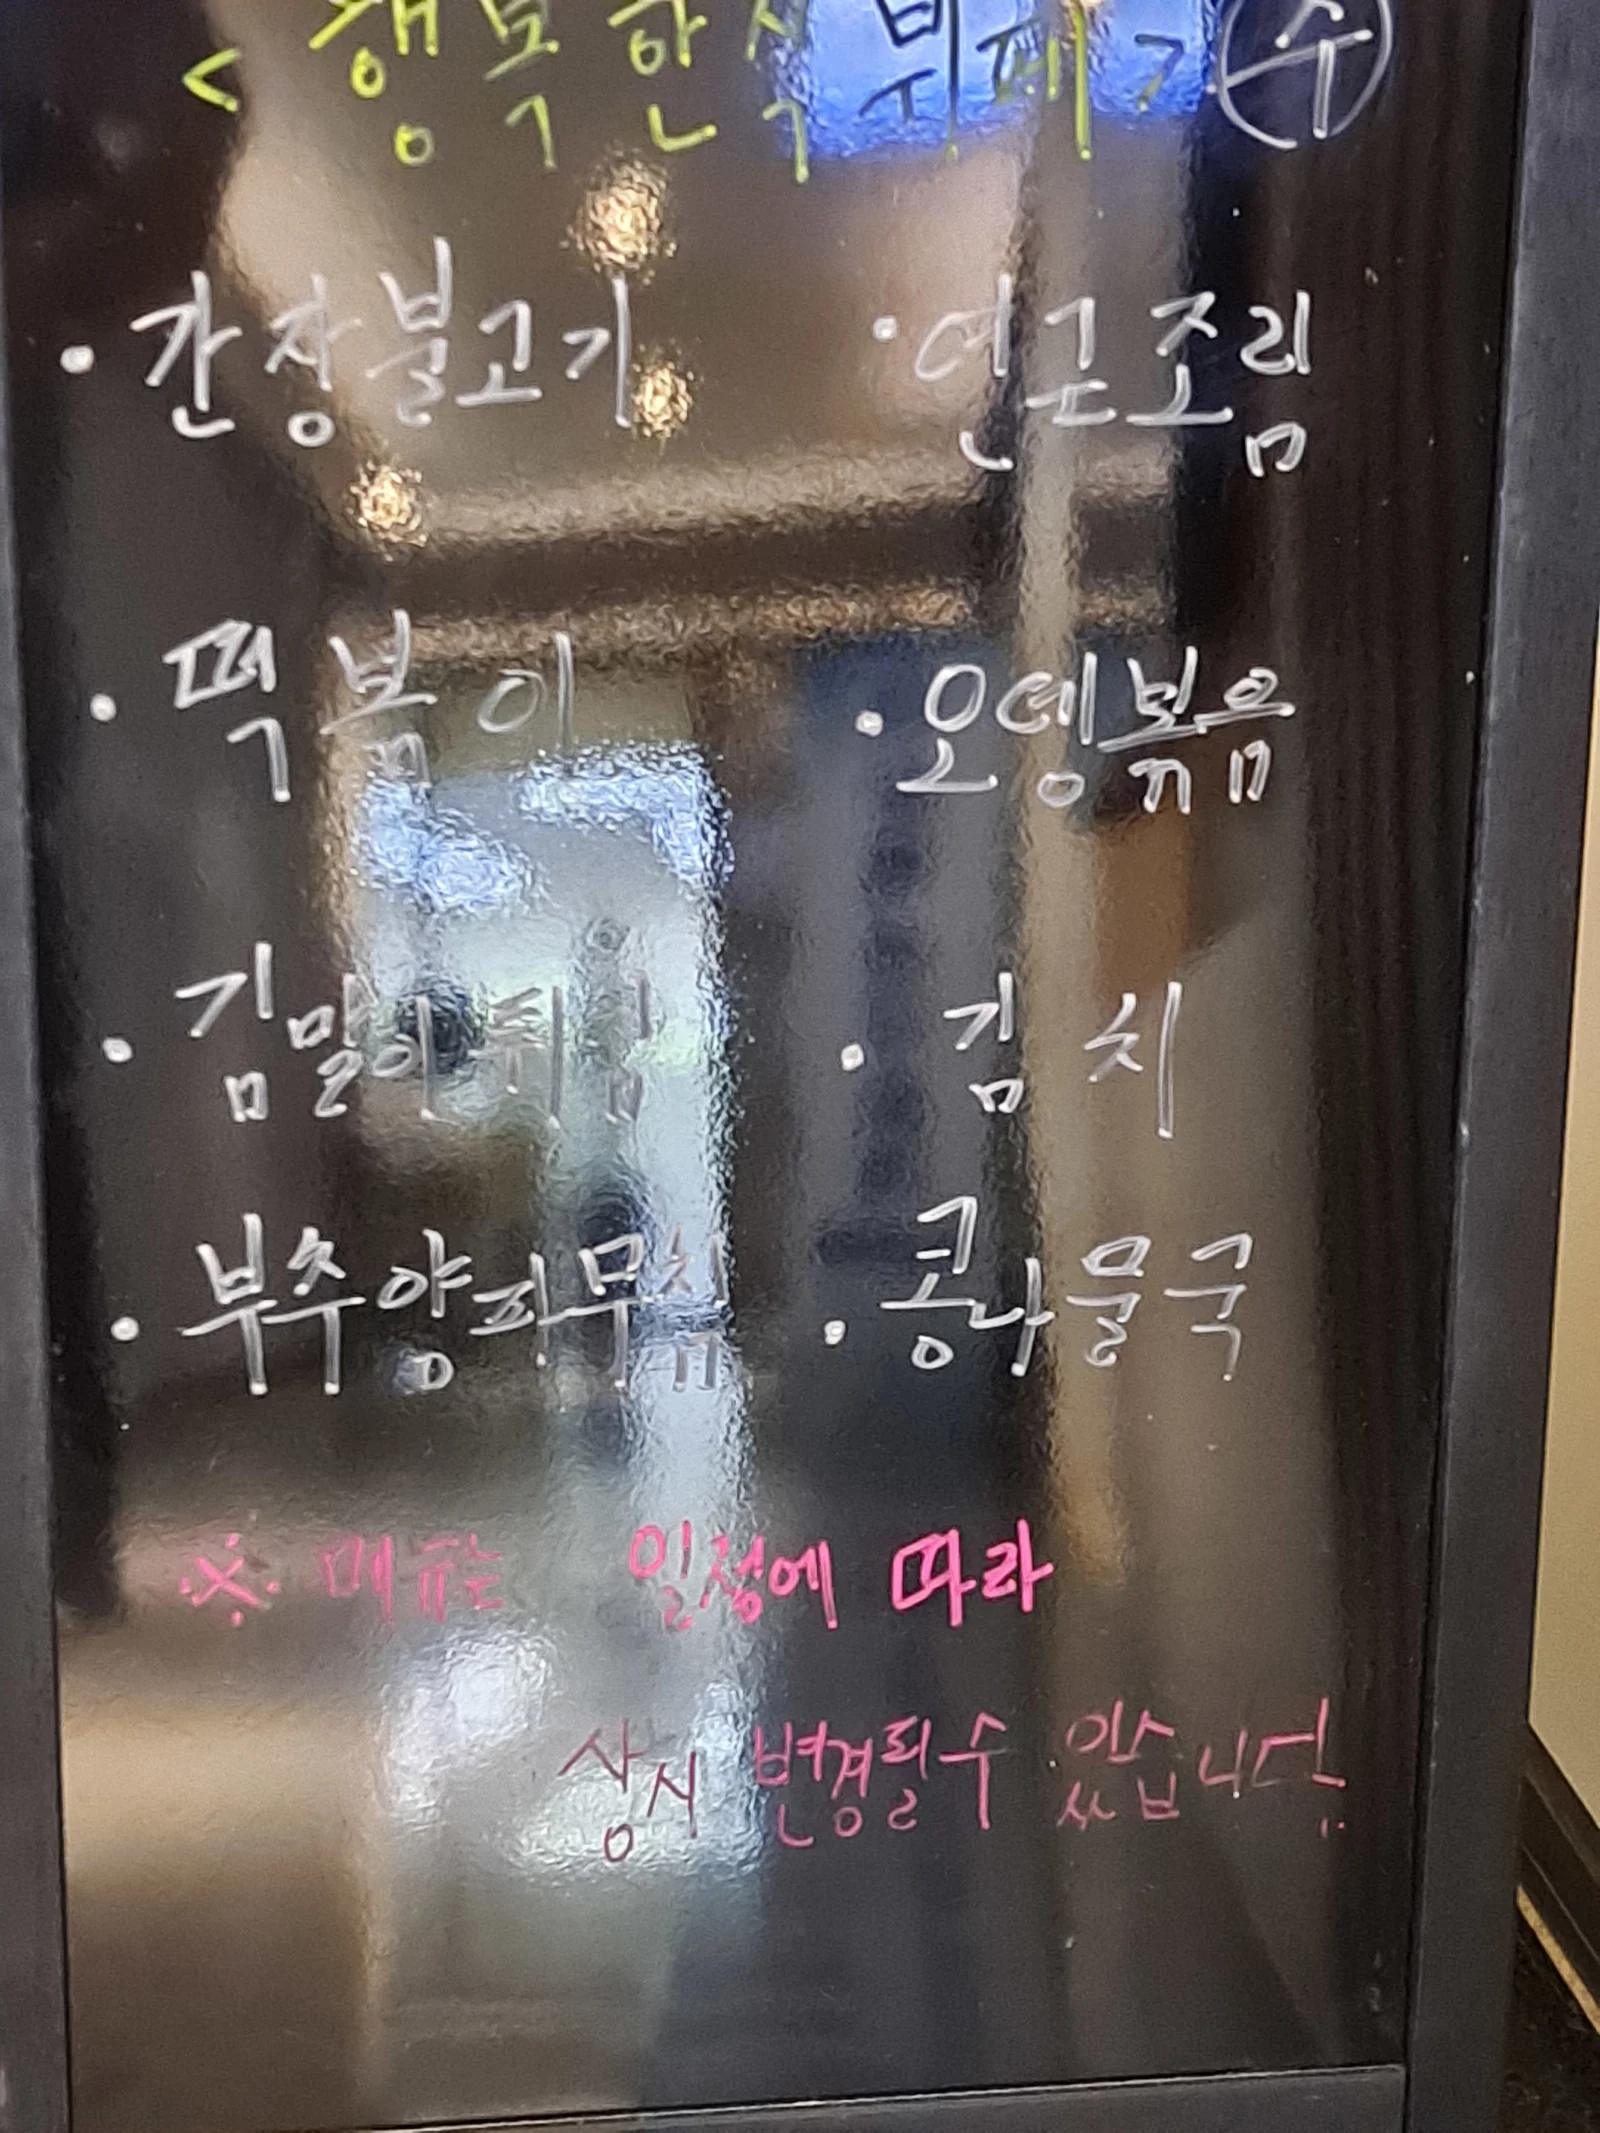 < 행복한식뷔페 > 수
· 간장불고기 · 연근조림
· 떡볶이 · 오뎅볶음
· 김말이튀김 · 김치
· 부추양파무침 · 콩나물국
※ 메뉴는 일정에 따라
상시 변경될수 있습니다.